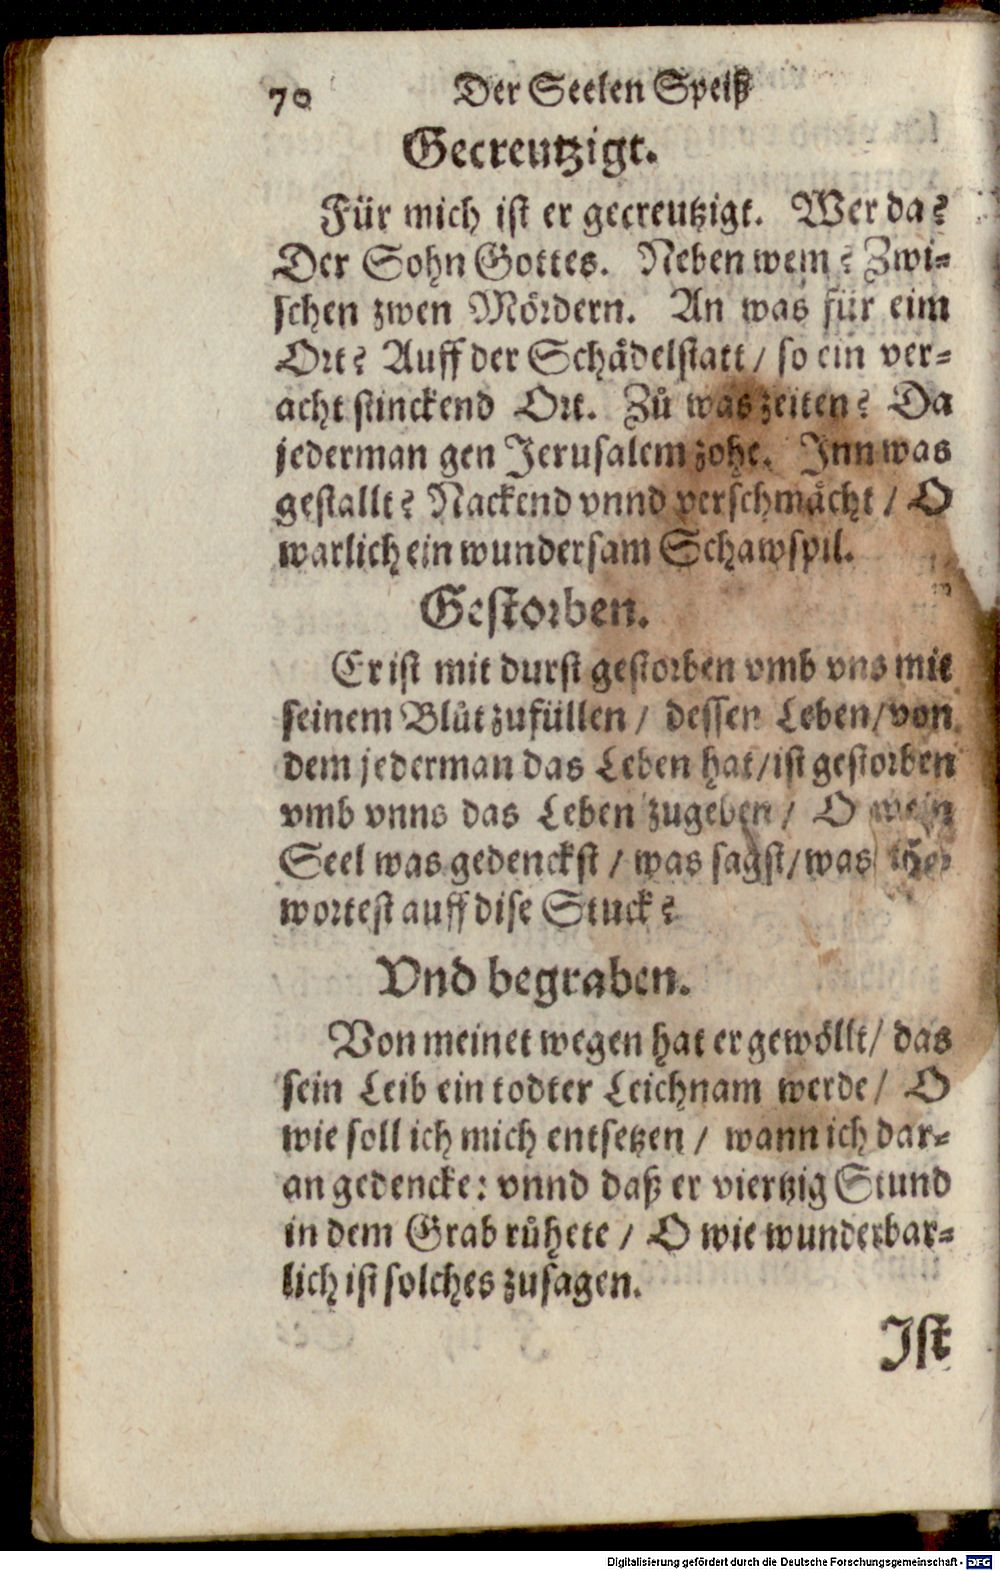 70 Der Seelen Speiß
Gecreutzigt.
Für mich ist er gecreutzigt. Wer da?
Der Sohn Gottes. Neben wem? Zwi-
schen zwen Mördern. An was für eim
Ort? Auff der Schädelstatt / so ein ver-
acht stinckend Ort. Zů was zeiten? Da
jederman gen Jerusalem zohe. Inn was
gestallt? Nackend vnnd verschmächt / O
warlich ein wundersam Schawspil.
Gestorben.
Er ist mit durst gestorben vmb vns mit
seinem Blůt zufüllen / dessen Leben/von
dem jederman das Leben hat/ist gestorben
vmb vnns das Leben zugeben / O mein
Seel was gedenckst / was sagst/was
wortest auff dise Stuck?
Vnd begraben.
Von meinet wegen hat er gewöllt/ das
sein Leib ein todter Leichnam werde / O
wie soll ich mich entsetzen / wann ich dar-
an gedencke: vnnd daß er viertzig Stund
in dem Grab růhete / O wie wunderbar-
lich ist solches zusagen.
Ist
Digitalisierung gefördert durch die Deutsche Forschungsgemeinschaft - DFG